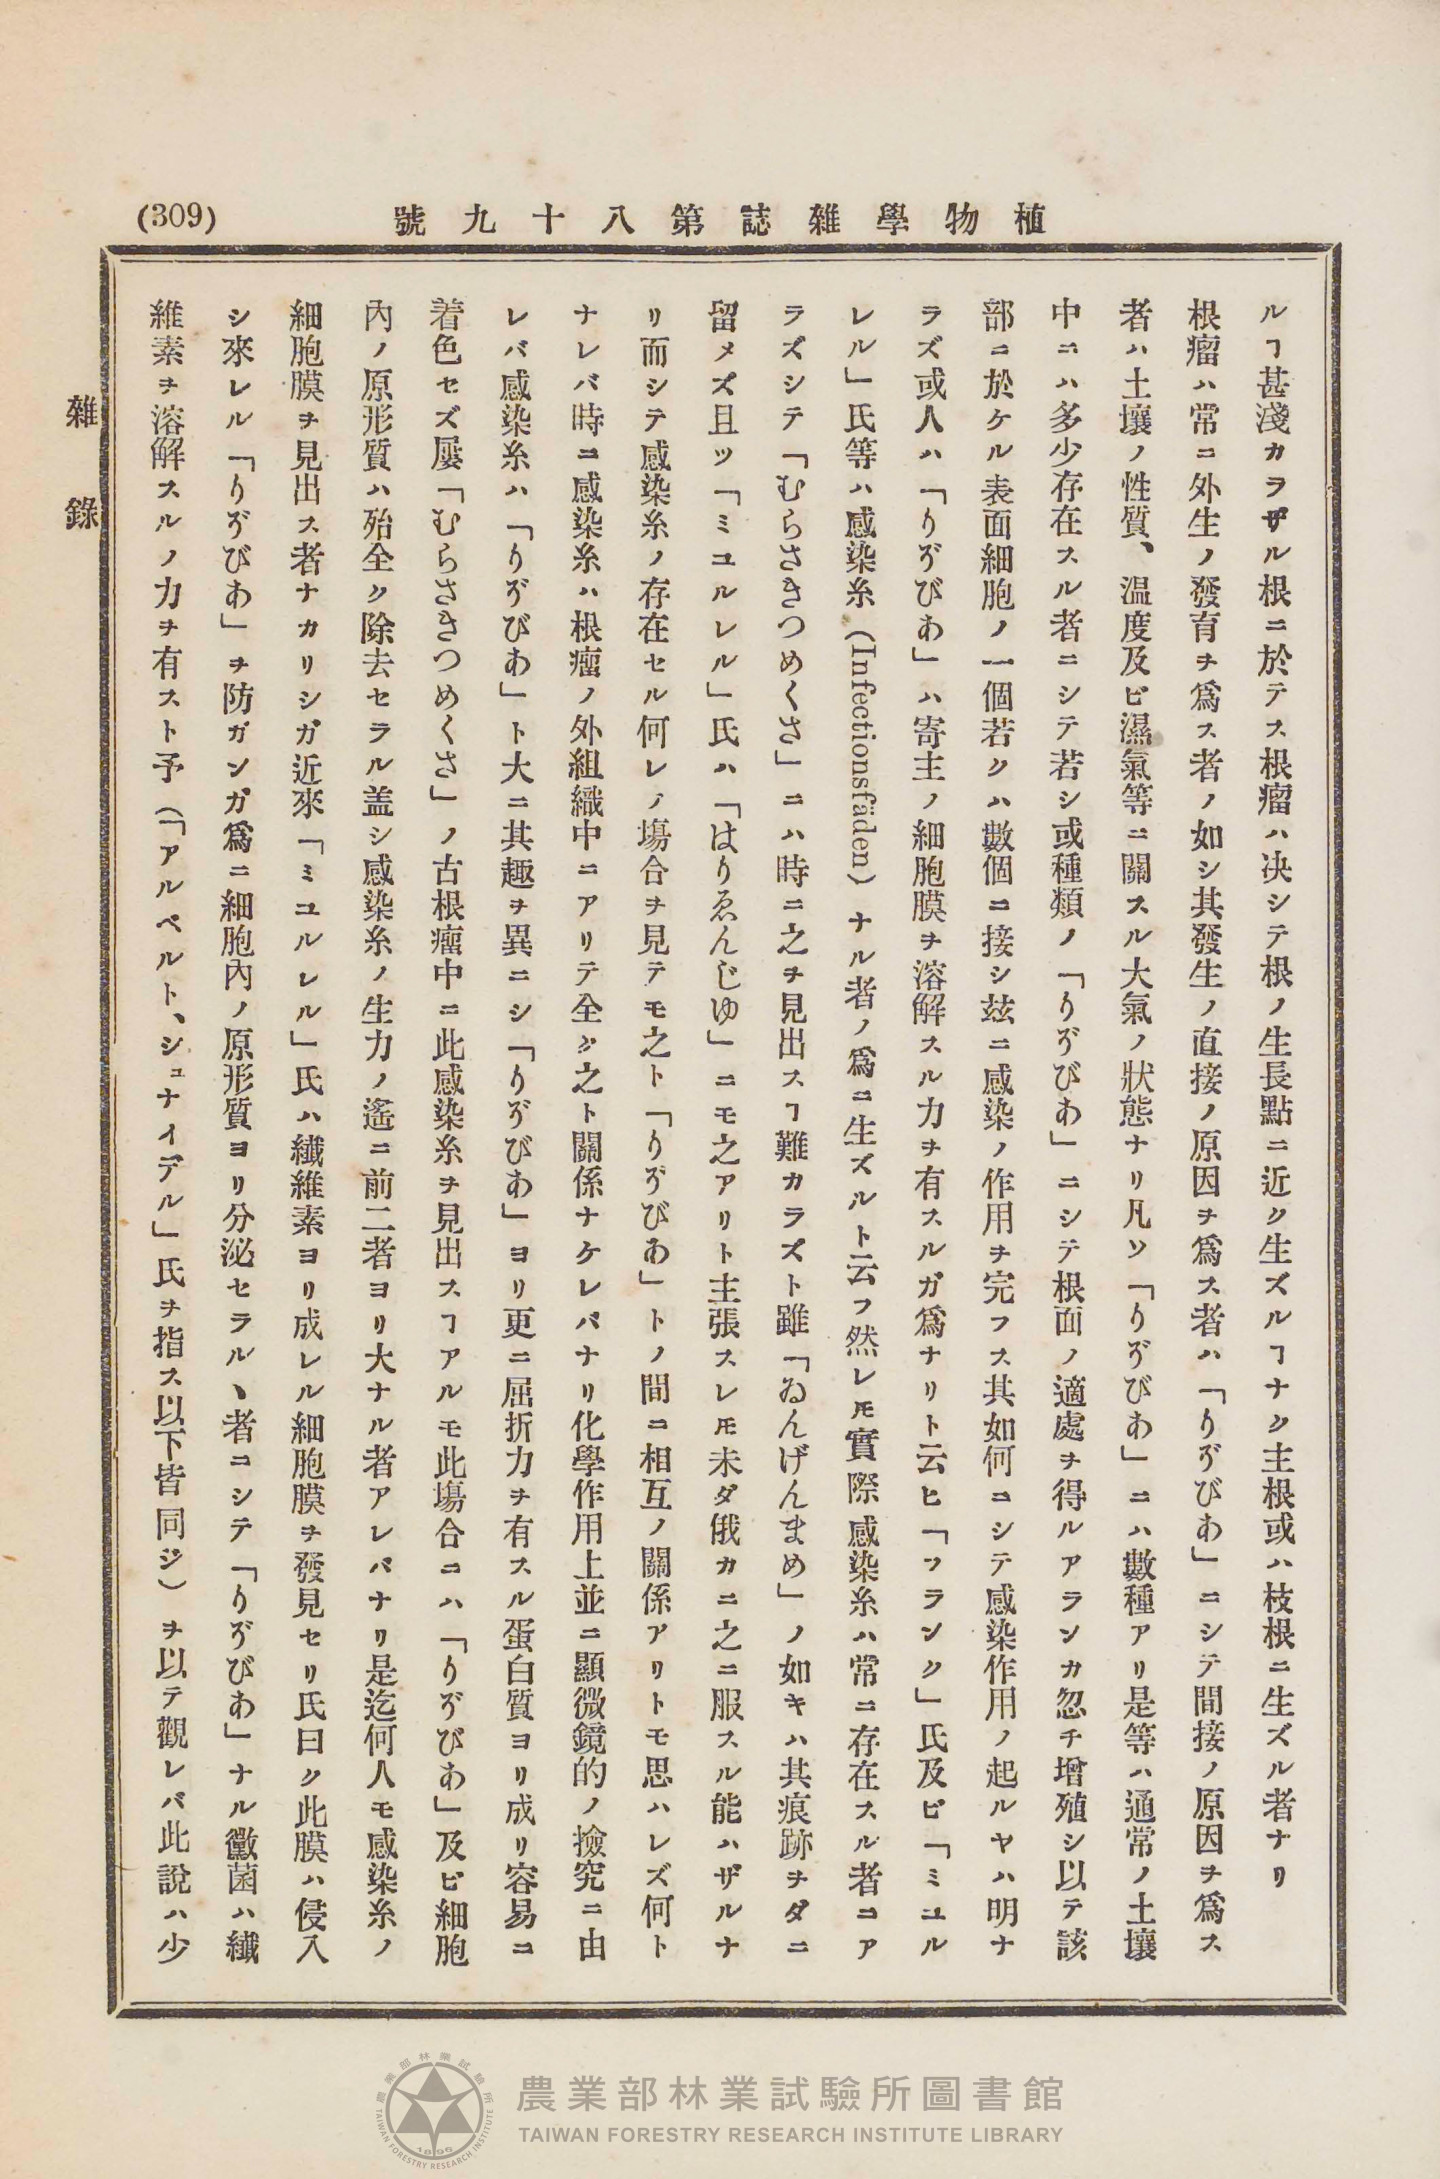 (309)
植物學雜誌第八十九號
雜錄
ルヿ甚淺カラザル根ニ於テス根瘤ハ决シテ根ノ生長點ニ近ク生ズルヿナク主根或ハ枝根ニ生ズル者ナリ
根瘤ハ常ニ外生ノ發育ヲ爲ス者ノ如シ其發生ノ直接ノ原因ヲ爲ス者ハ「りぞびあ」ニシテ間接ノ原因ヲ爲ス
者ハ土壤ノ性質、溫度及ビ濕氣等ニ關スル大氣ノ狀態ナリ凡ソ「りぞびあ」ニハ數種アリ是等ハ通常ノ土壤
中ニハ多少存在スル者ニシテ若シ或種類ノ「りぞびあ」ニシテ根面ノ適處ヲ得ルアランカ忽チ增殖シ以テ該
部ニ於ケル表面細胞ノ一個若クハ數個ニ接シ玆ニ感染ノ作用ヲ完フス其如何ニシテ感染作用ノ起ルヤハ明ナ
ラズ或人ハ「りぞびあ」ハ寄主ノ細胞膜ヲ溶解スル力ヲ有スルガ爲ナリト云ヒ「フランク」氏及ビ「ミユル
レル」氏等ハ感染糸(Infectionsfäden)ナル者ノ爲ニ生ズルト云フ然レ𪜈實際感染糸ハ常ニ存在スル者ニア
ラズシテ「むらさきつめくさ」ニハ時ニ之ヲ見出スヿ難カラズト雖「ゐんげんまめ」ノ如キハ其痕跡ヲダニ
留メズ且ツ「ミユルレル」氏ハ「はりゑんじゆ」ニモ之アリト主張スレ𪜈未ダ俄カニ之ニ服スル能ハザルナ
リ而シテ感染糸ノ存在セル何レノ塲合ヲ見テモ之ト「りぞびあ」トノ間ニ相互ノ關係アリトモ思ハレズ何ト
ナレバ時ニ感染糸ハ根瘤ノ外組織中ニアリテ全ク之ト關係ナケレバナリ化學作用上並ニ顯微鏡的ノ撿究ニ由
レバ感染糸ハ「りぞびあ」ト大ニ其趣ヲ異ニシ「りぞびあ」ヨリ更ニ屈折力ヲ有スル蛋白質ヨリ成リ容易ニ
着色セズ屢「むらさきつめくさ」ノ古根瘤中ニ此感染糸ヲ見出スヿアルモ此塲合ニハ「りぞびあ」及ビ細胞
內ノ原形質ハ殆全ク除去セラル盖シ感染糸ノ生力ノ遙ニ前二者ヨリ大ナル者アレバナリ是迄何人モ感染糸ノ
細胞膜ヲ見出ス者ナカリシガ近來「ミユルレル」氏ハ纖維素ヨリ成レル細胞膜ヲ發見セリ氏曰ク此膜ハ侵入
シ來レル「りぞびあ」ヲ防ガンガ爲ニ細胞內ノ原形質ヨリ分泌セラルヽ者ニシテ「りぞびあ」ナル黴菌ハ纖
維素ヲ溶解スルノ力ヲ有スト予(「アルベルト、シュナイデル」氏ヲ指ス以下皆同ジ)ヲ以テ觀レバ此說ハ少
農業部林業試驗所圖書館
TAIWAN FORESTRY RESEARCH INSTITUTE LIBRARY
農業部林業試驗所
TAIWAN FORESTRY RESEARCH INSTITUTE
1896